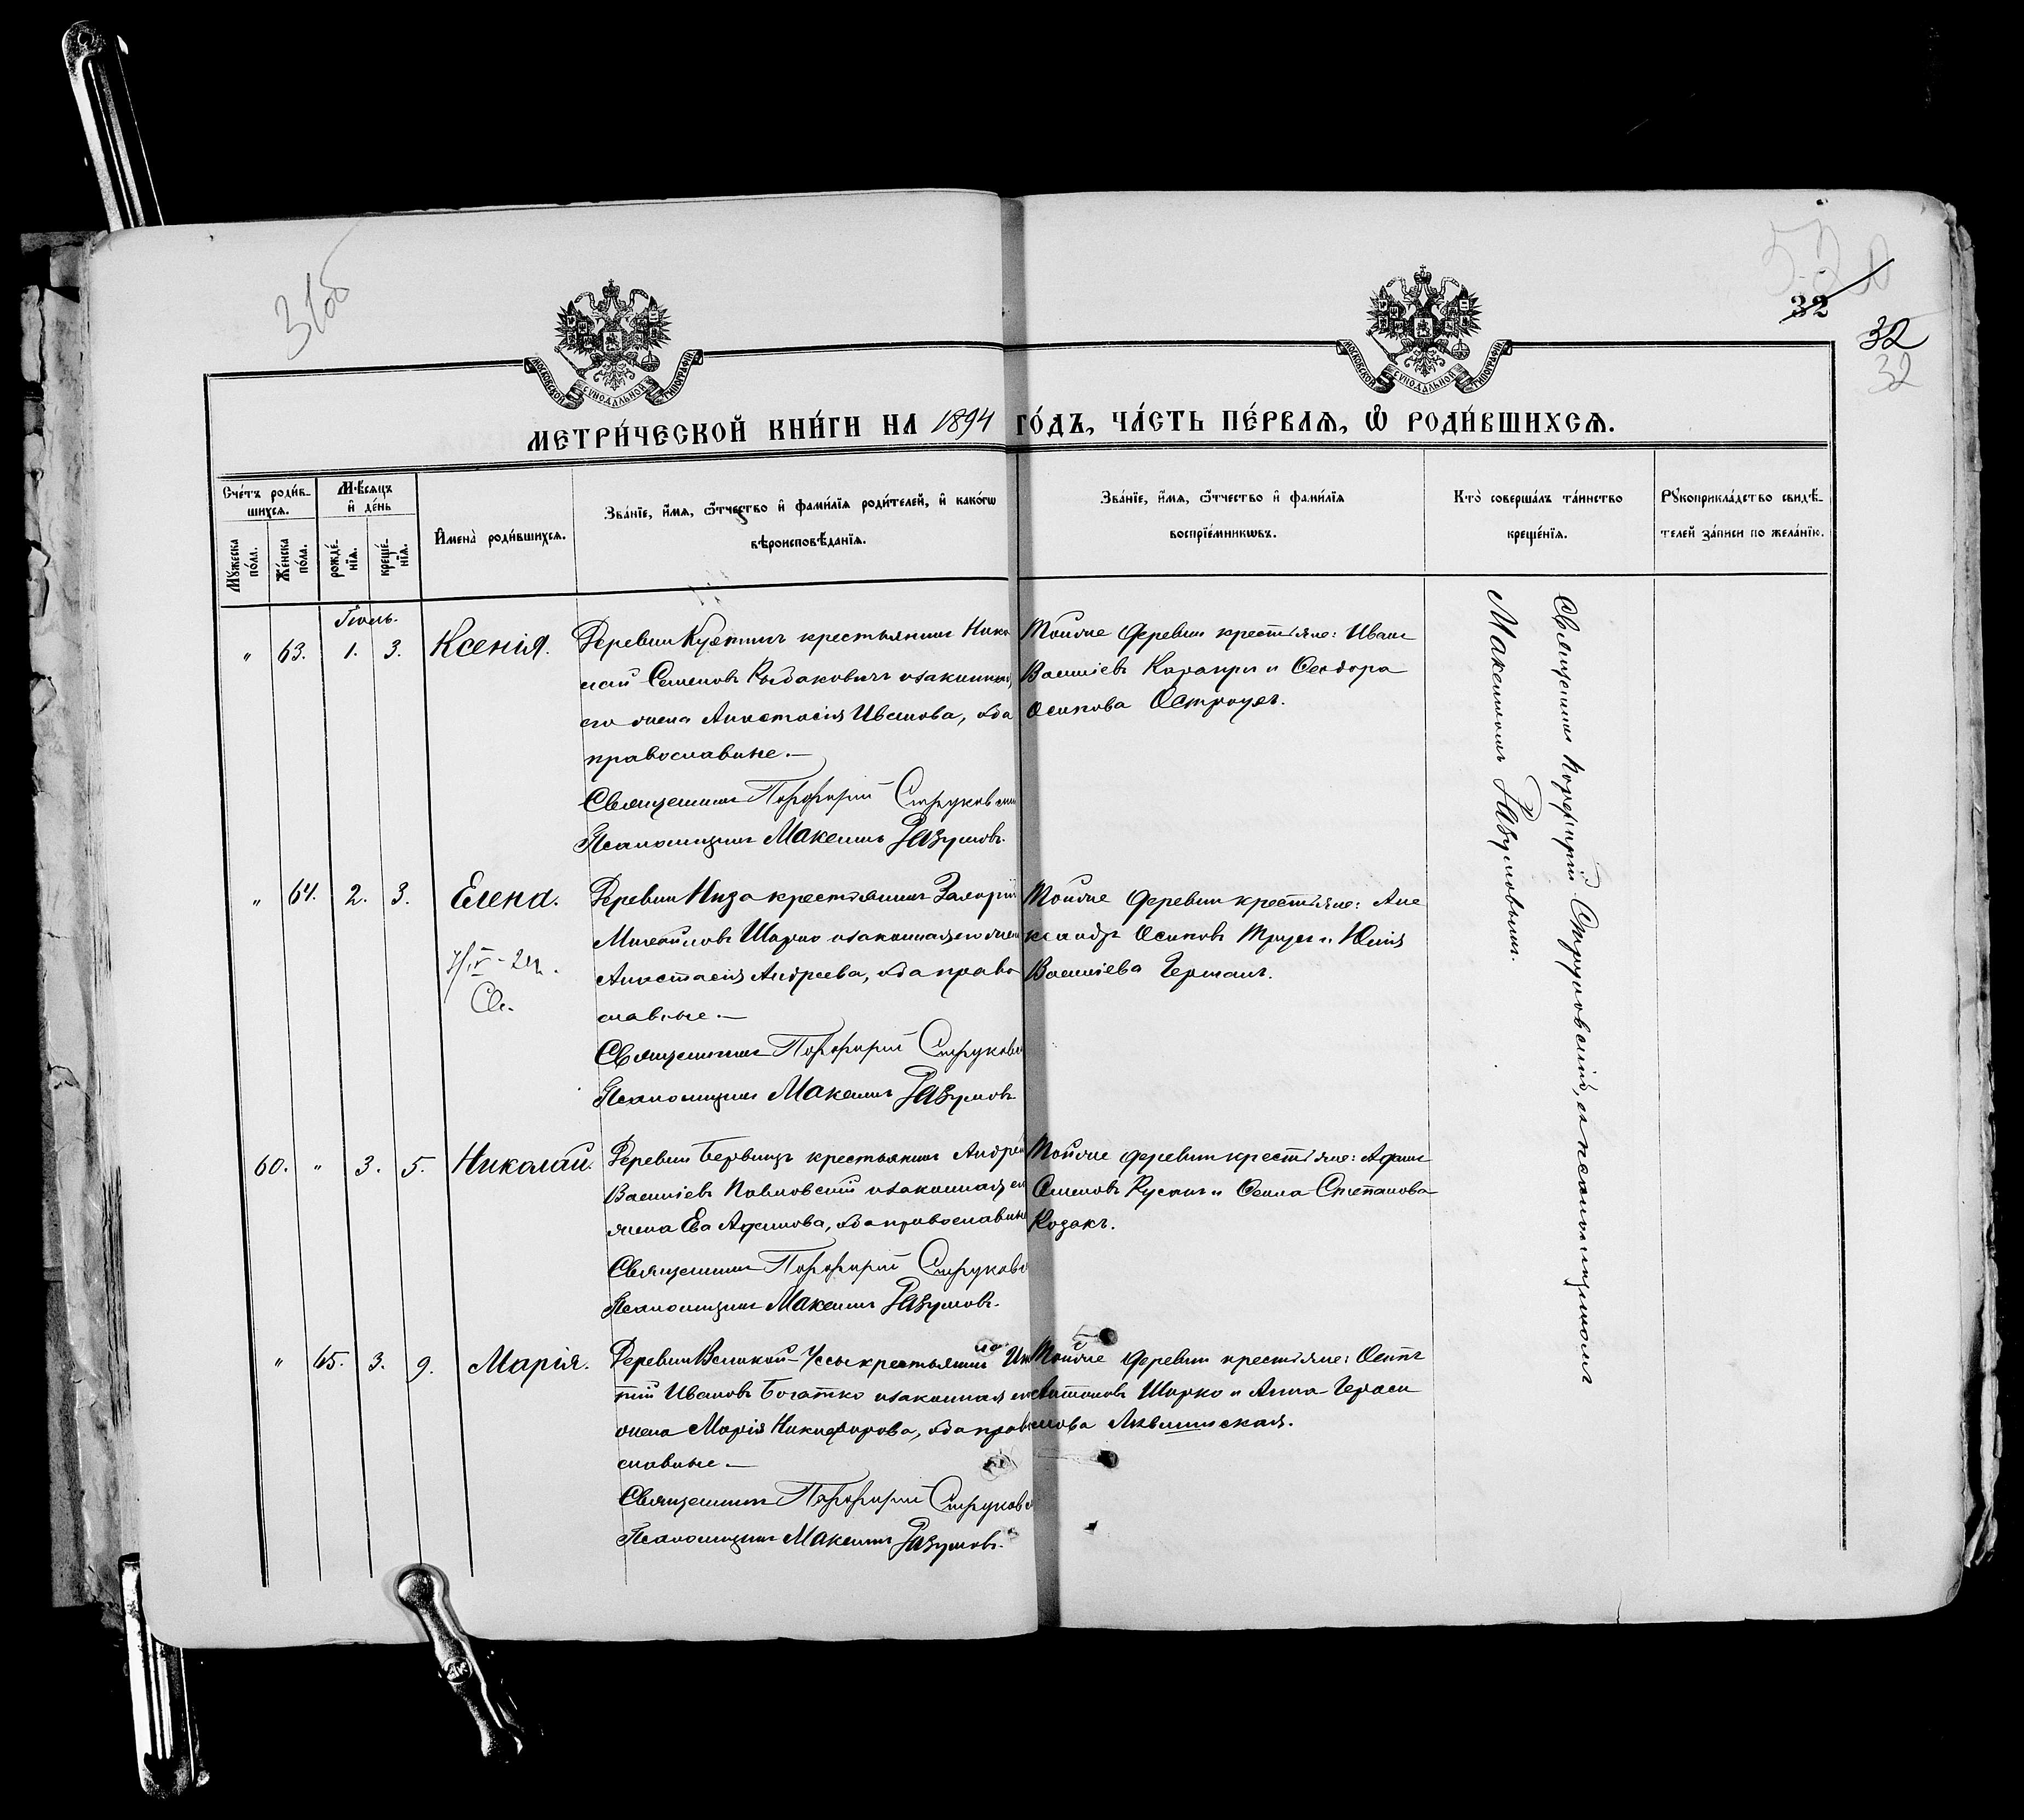 31об
32
32
32
МОСКОВСКОЙ СУНОДАЛЬНОЙ ТИПОГРАФІИ
МОСКОВСКОЙ СУНОДАЛЬНОЙ ТИПОГРАФІИ
МЕТРИ́ЧЕСКОЙ КНИ́ГИ НА 1894 ГО́ДЪ, ЧА́СТЬ ПЕ́РВАЯ, Ѽ РОДИ́ВШИХСѦ.
Сче́тъ роди́в-
шихсѧ.
Мꙋ́жеска по́ла.
Же́нска по́ла.
М҃ѣсѧцъ и҆ де́нь
рожде́-нїѧ.
креще́-нїѧ.
И҆мена̀ роди́вшихсѧ.
Зва́нїе, и҆́мѧ, ѻ҆́тчество и҆ фами́лїѧ роди́телей, и҆ како́гѡ
вѣроисповѣ́данїѧ.
Зва́нїе, и҆́мѧ, ѻ҆́тчество и҆ фами́лїѧ
воспрїе́мникѡвъ.
Кто̀ соверша́лъ та́инство
креще́нїѧ.
Рꙋкоприкла́дство свидѣ́-
телей за́писи по жела́нїю.
Іюль.
" 63. 1. 3. Ксенія.
Деревни крестьянинъ Нико
лай Семеновъ Рыбаковичъ и законная
его жена Анастасія Иванова, оба
православные.—
Священникъ Порфирій Струковскій
Псаломщикъ Максимъ Разумовъ.
Тойже деревни крестьяне: Иванъ
Василіевъ и Ѳеодора
Осипова Остроухъ.
Священникъ Порфирій Струковскій, съ псаломщикомъ
Максимомъ Разумовымъ.
" 64. 2. 3. Елена.
Деревни Низа крестьянинъ Захарій
Михайловъ Шарко и законная его жена
Анастасія Андреева, оба право
славные.—
Священникъ Порфирій Струковс
Псаломщикъ Максимъ Разумовъ
Тойже деревни крестьяне: Але
ксандръ Осиповъ Трухъ и Юлія
Василіева Германъ.
60. " 3. 5. Николай.
Деревни крестьянинъ Андрей
Василіевъ Павловскій и законная его
жена Ева Афимова, оба православные
Священникъ Порфирій Струковс
Псаломщикъ Максимъ Разумовъ.
Тойже деревни крестьяне: Афимъ
Семеновъ и Степанова
Козакъ.
" 65. 3. 9. Марія.
Деревни Великой-Уссы крестьянинъ Игна
тій Ивановъ Богатко и законная его
жена Марія Никифорова, оба право
славные.—
Священникъ Порфирій Струковс
Псаломщикъ Максимъ Разумовъ.
Тойже деревни крестьяне: Осипъ
Антоновъ Шарко и Анна Гераси
мова